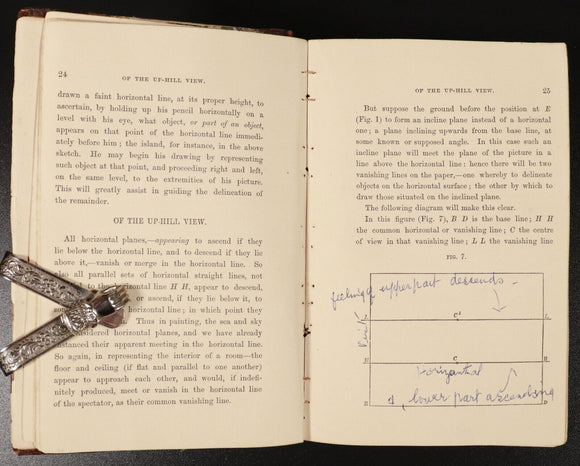 24
OF THE UP-HILL VIEW.
drawn a faint horizontal line, at its proper height, to
ascertain, by holding up his pencil horizontally on a
level with his eye, what object, or part of an object,
appears on that point of the horizontal line immedi-
ately before him; the island, for instance, in the above
sketch. He may begin his drawing by representing
such object at that point, and proceeding right and left,
on the same level, to the extremities of his picture.
This will greatly assist in guiding the delineation of
the remainder.
OF THE UP-HILL VIEW.
All horizontal planes,—appearing to ascend if they
lie below the horizontal line, and to descend if they lie
above it,—vanish or merge in the horizontal line. So
also all parallel sets of horizontal straight lines, not
to the horizontal line H H, appear to descend,
or ascend, if they lie below it, to
horizontal line; in which point they
Thus in painting, the sea and sky
horizontal planes, and we have already
instanced their apparent meeting in the horizontal line.
So again, in representing the interior of a room—the
floor and ceiling (if flat and parallel to one another)
appear to approach each other, and would, if indefi-
nitely produced, meet or vanish in the horizontal line
of the spectator, as their common vanishing line.
OF THE UP-HILL VIEW.
25
But suppose the ground before the position at E
(Fig. 1) to form an incline plane instead of a horizontal
one; a plane inclining upwards from the base line, at
some known or supposed angle. In this case such an
incline plane will meet the plane of the picture in a
line above the horizontal line; hence there will be two
vanishing lines on the paper,—one whereby to delineate
objects on the horizontal surface; the other by which to
draw those situated on the inclined plane.
The following diagram will make this clear.
In this figure (Fig. 7), B D is the base line; H H
the common horizontal or vanishing line; C the centre
of view in that vanishing line; L L the vanishing line
FIG. 7.
feeling of upper part descends -
L C¹ L
H C H
Horizontal
lower part ascending
B D